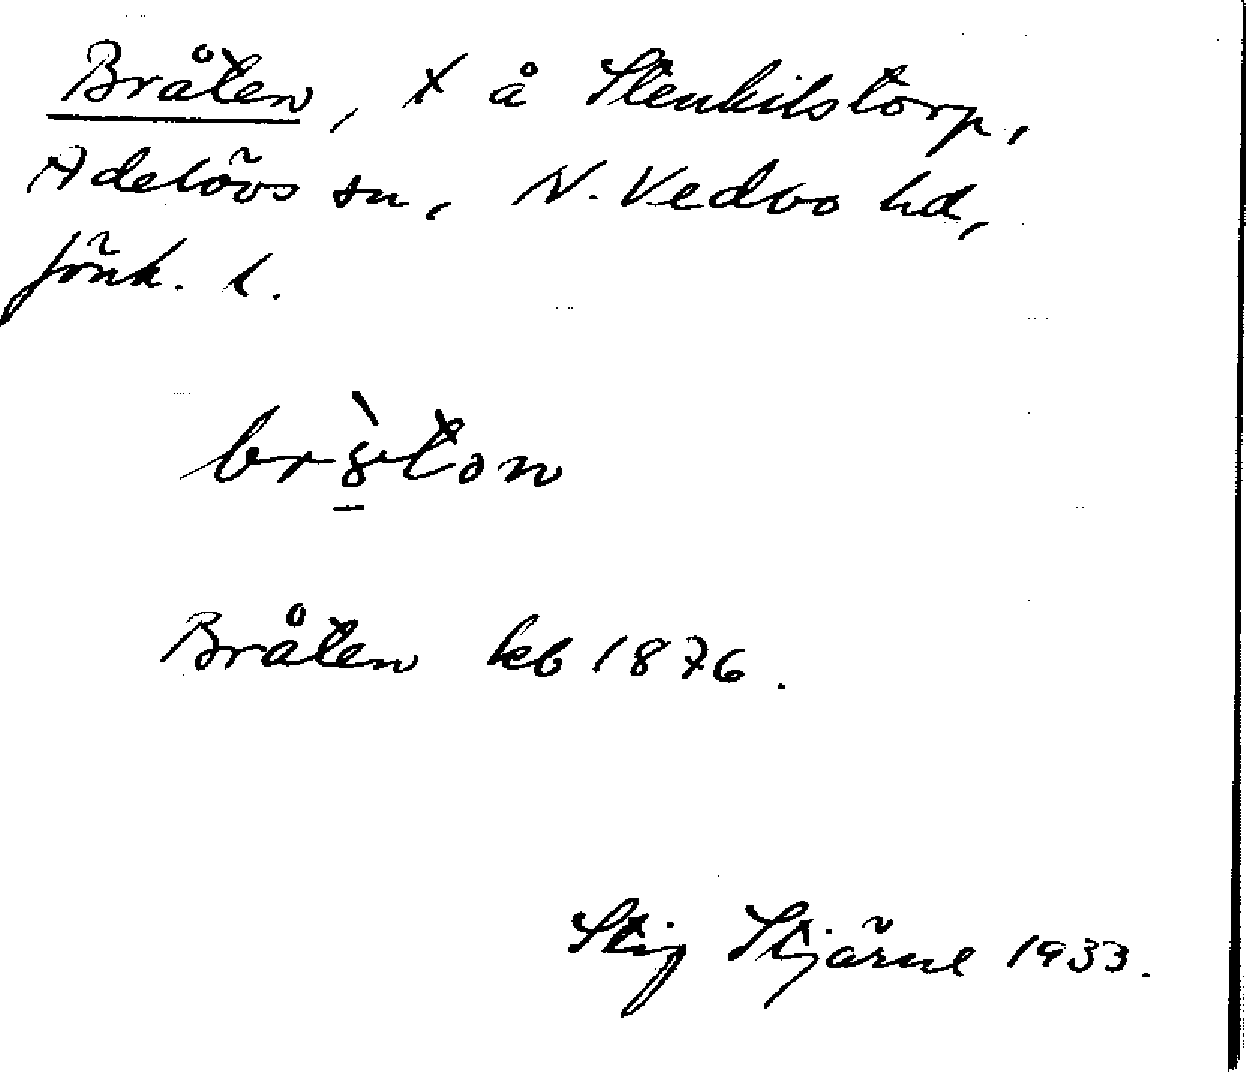 Bråten, x å Stenkilstorp,
Adelövs sn, N. Vedbo hd,
Jönk. l.
br8̱̀ton
Bråten kb 1876.
Stig Stjärne 1933.